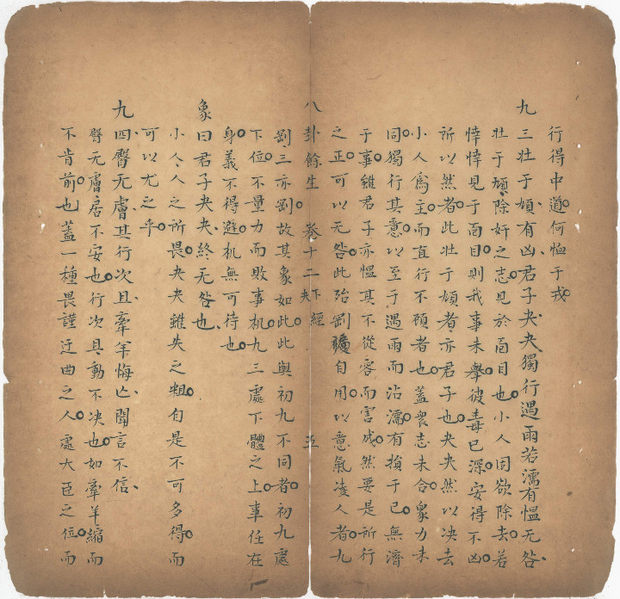 行得中道何恤于戎
九三壯于頄有凶君子夬夬獨行遇雨若濡有慍无咎
壯于頄除奸之志見於面目也小人固欲除去若
悻悻見于面目則我事未舉彼毒已深安得不凶
所以然者此壯于頄者亦君子也夬夬然以决去
小人爲主而直行不顧者也蓋衆志未合衆力未
同獨行其意以至于遇雨而沾濡有損于己無濟
于事雖君子亦慍其不從容而害成然要是所行
之正可以无咎此殆剛自用以意氣凌人者九
八卦餘生 卷十二 夬 下經 五
剛三亦剛故其象如此此與初九不同者初九處
下位不量力而敗事机九三處下體之上事任在
身義不得避机無可待也
象曰君子夬夬終无咎也
小人之所畏夬夬雖失之粗自是不可多得而
可以尤之乎
九四臀无膚其行次且牽羊悔亡聞言不信
臀无膚居不安也行次且動不决也如牽羊縮而
不肯前也蓋一種畏謹迂曲之人處大臣之位而